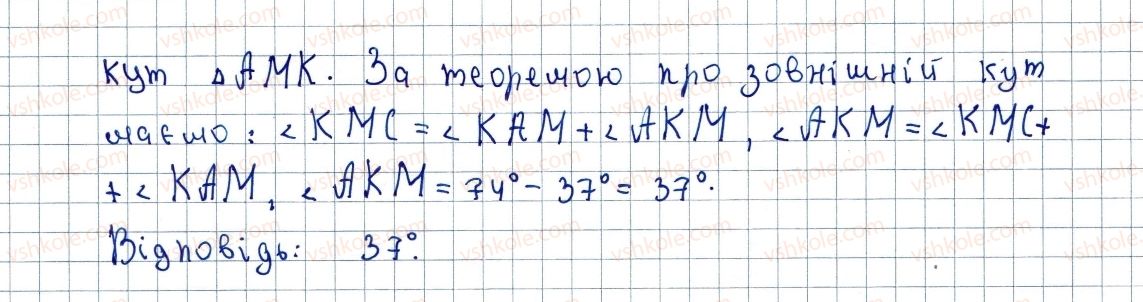 кут △AMK. За теоремою про зовнішній кут
маємо: ∠KMC = ∠KAM + ∠AKM, ∠AKM = ∠KMC +
+ ∠KAM, ∠AKM = 74° - 37° = 37°.
Відповідь: 37°.